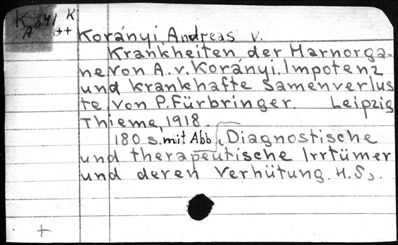 K 541 K
A **
Korányi, Andreas v.
Krankheiten der Harnorga-
ne von A. v. Korányi. Impotenz
und krankhafte Samenverlus
te von P. Fürbringer. Leipzig
Thieme, 1918.
180 s. mit Abb (Diagnostische
und therapeutische Irrtümer
und deren Verhütung. H.S).
+